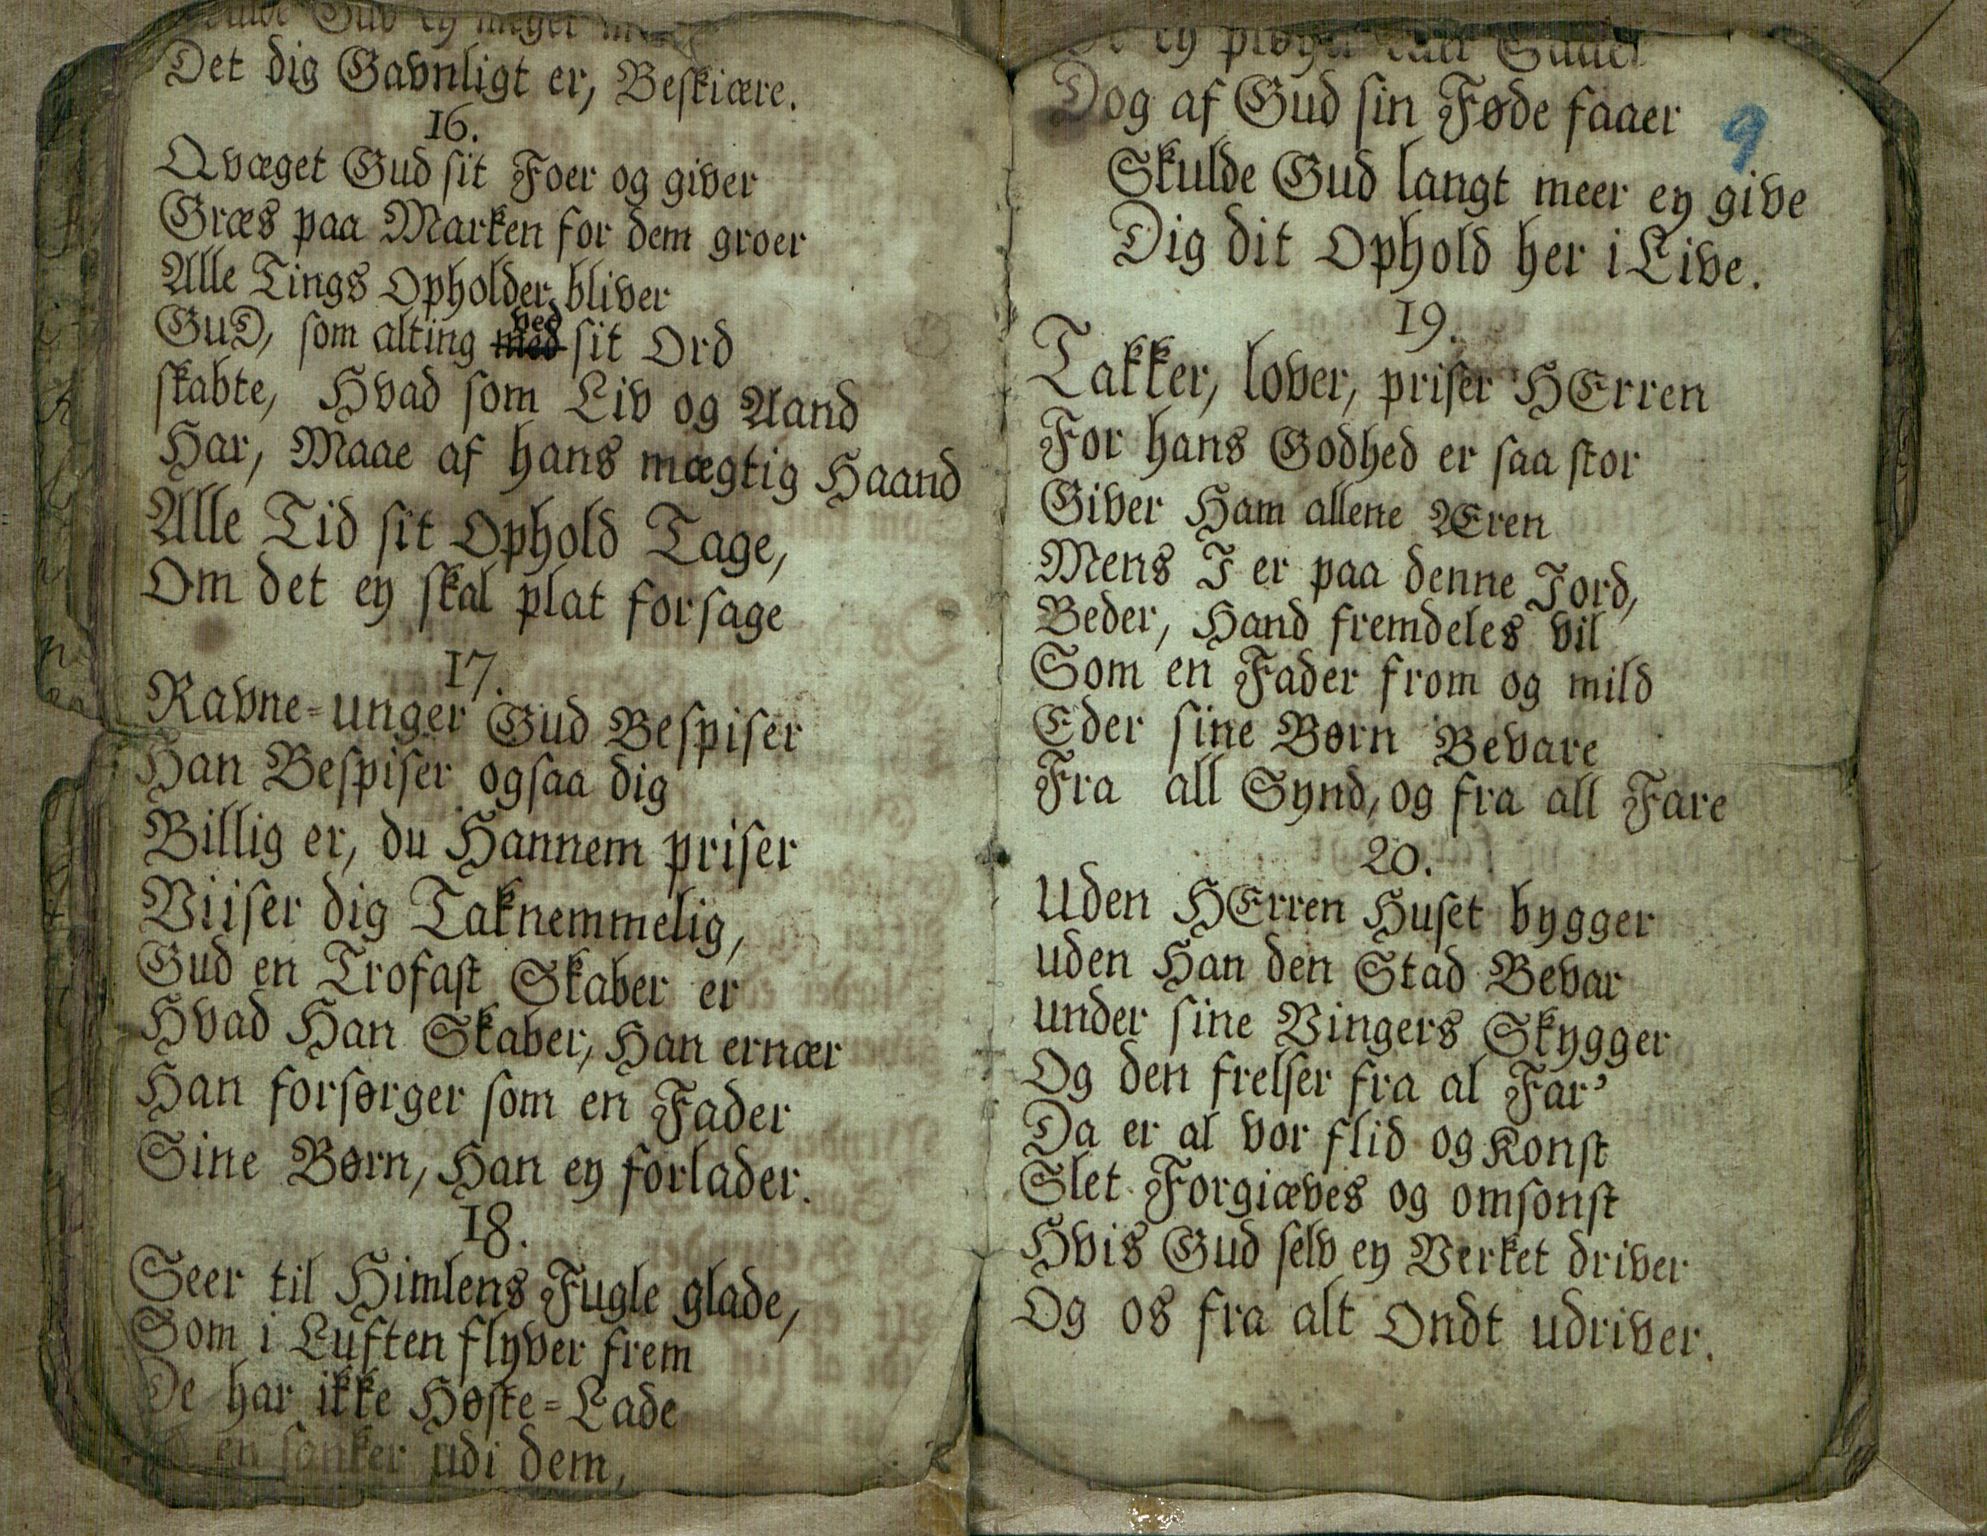 Gud ey meget
Det dig Gavnligt er, Beskiære.
16.
Qvæget Gud sit Foer og giver
Græs paa Marken for dem groer
Alle Tings Opholder bliver
GuD, som alting med ved sit Ord
skabte, Hvad som Liv og Aand
Har, Maae af hans mægtig Haand
Alle Tid sit Ophold Tage,
Om det ey skal plat forsage
17.
Ravne=unger Gud Bespiser
Han Bespiser ogsaa dig
Billig er, du Hannem priser
Viiser dig Taknemmelig,
Gud en Trofast Skaber er
Hvad Han Skaber, Han ernær
Han forsørger som en Fader
Sine Børn, Han ey forlader.
18.
Seer til Himlens Fugle glade,
Som i Luften flyver frem
De har ikke Høste=Lade
en sanker udi dem,
ey pløyer
Dog af Gud sin Føde faaer
9
Skulde Gud langt meer ey give
Dig dit Ophold her i Live.
19.
Takker, lover, priser HErren
For hans Godhed er saa stor
Giver Ham allene Æren
Mens I er paa denne Jord,
Beder, Hand fremdeles vil
Som en Fader from og mild
Eder sine Børn Bevare
Fra all Synd, og fra all Fare
20.
Uden HErren Huset bygger
uden Han den Stad Bevar
under sine Vingers Skygger
Og den frelser fra al Far'
Da er al vor flid og Konst
Slet Forgiæves og omsonst
Hvis Gud selv ey Verket driver
Og os fra alt Ondt udriver.